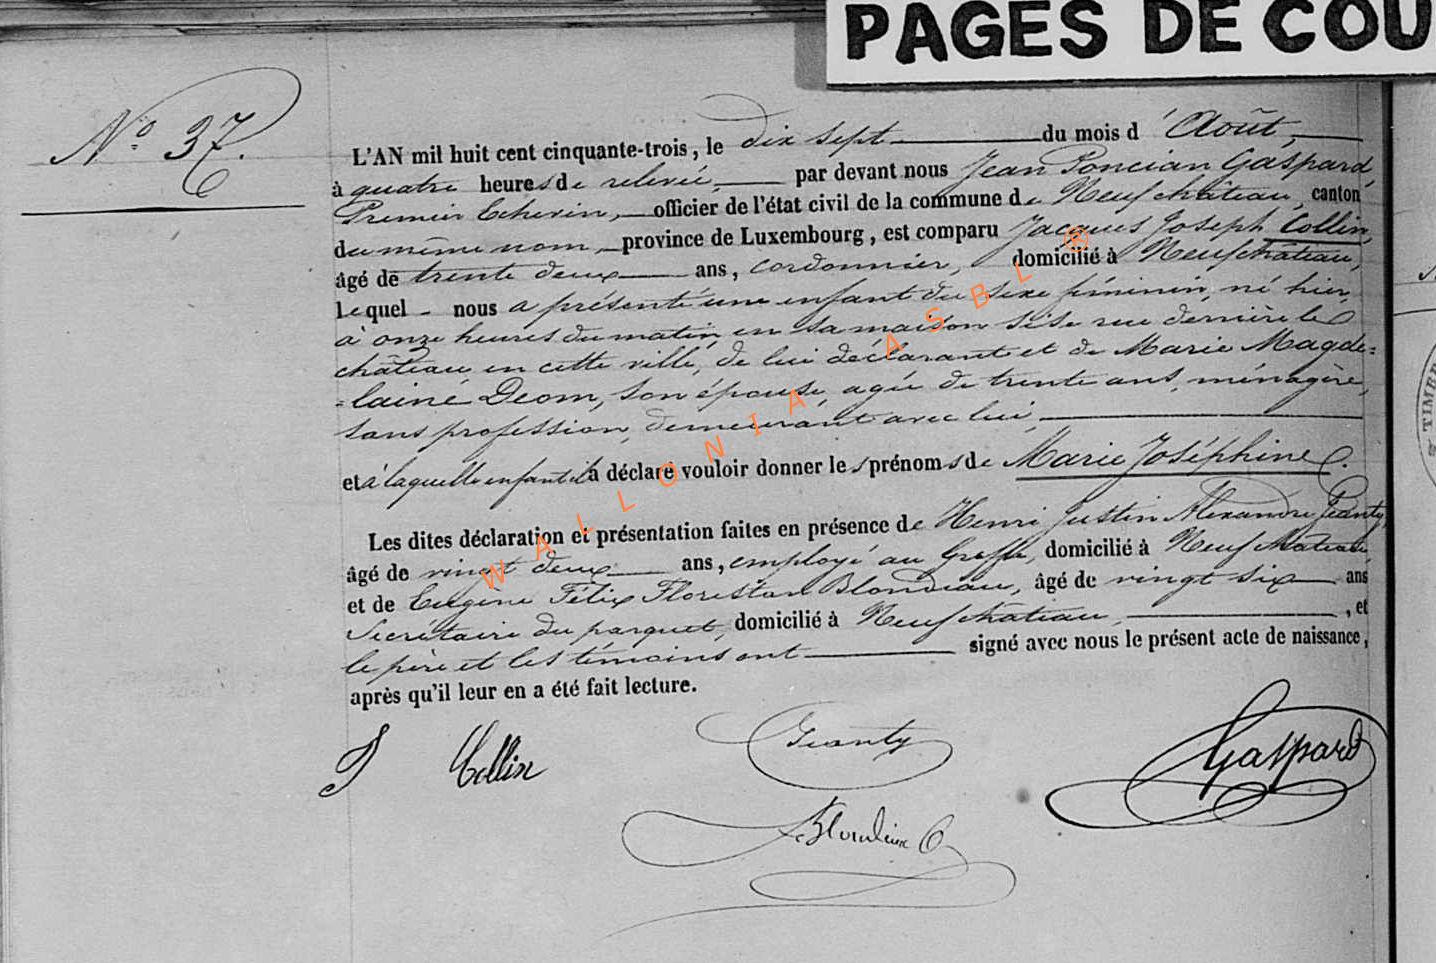 PAGES DE COU
N° 37.
L'AN mil huit cent cinquante-trois, le dix sept du mois d'Août,
à quatre heures de relevée, par devant nous Jean Poncian Gaspard,
Premier Echevin, officier de l'état civil de la commune de Neufchâteau, canton
du même nom, province de Luxembourg, est comparu Jacques Joseph Collin,
âgé de trente deux ans, cordonnier, domicilié à Neufchâteau,
lequel nous a présenté une enfant du sexe féminin, né hier,
à onze heures du matin, en sa maison sise rue derrière le
château en cette ville, de lui déclarant et de Marie Magde=
=laine Deom, son épouse, agée de trente ans, ménagère,
sans profession, demeurant avec lui,
et à laquelle enfant il a déclaré vouloir donner les prénoms de Marie Joséphine C.
Les dites déclaration et présentation faites en présence de Henri Justin Alexandre Jeanty,
âgé de vingt deux ans, employé au Greffe, domicilié à Neufchâteau
et de Eugène Félix Florestan Blondiau, âgé de vingt six ans
Secrétaire du parquet, domicilié à Neufchâteau, , et
le père et les témoins ont signé avec nous le présent acte de naissance,
après qu'il leur en a été fait lecture.
J Collin Jeanty Gaspard
Blondiau
WALLONIA ASBL ®
TIMBR